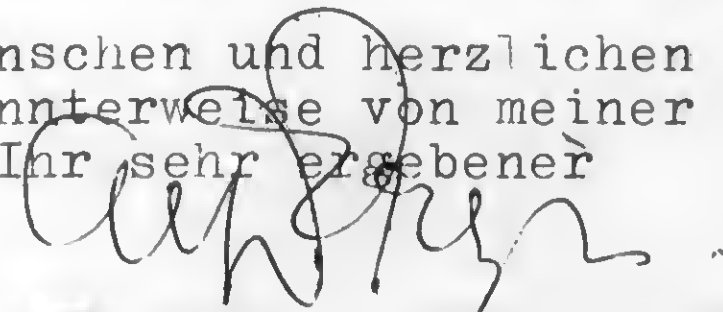 nschen und herzlichen
nnterweise von meiner
Ihr sehr ergebener